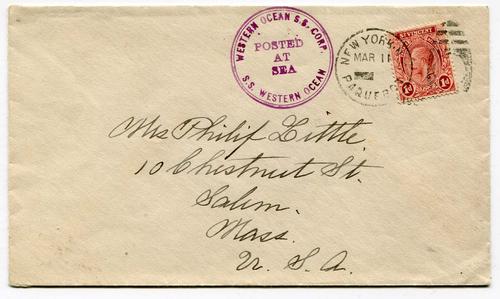 WESTERN OCEAN S.S. CORP.
POSTED
AT
SEA
S.S. WESTERN OCEAN
NEW YORK, N
MAR 11
PAQUEBO
ST VINCENT
1d 1d
Mrs Philip Little.
10 Chestnut St.
Salem.
Mass.
U. S. A.